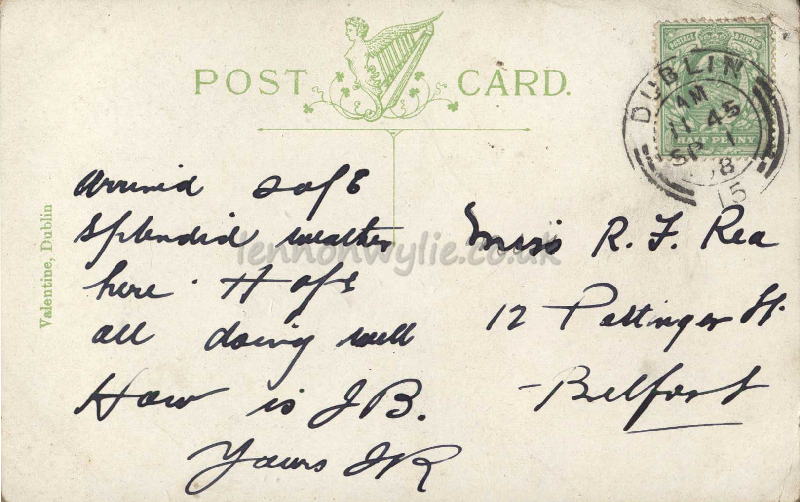 POST CARD.
HALF PENNY
DUBLIN
AM
11 45
SP 1
08
15
Valentine, Dublin
lennonwylie.co.uk
Arrived safe
Splendid weather
here. Hope
all doing well
How is JB.
Yours JR
Miss R. F. Rea
12 Pottinger St.
Belfast